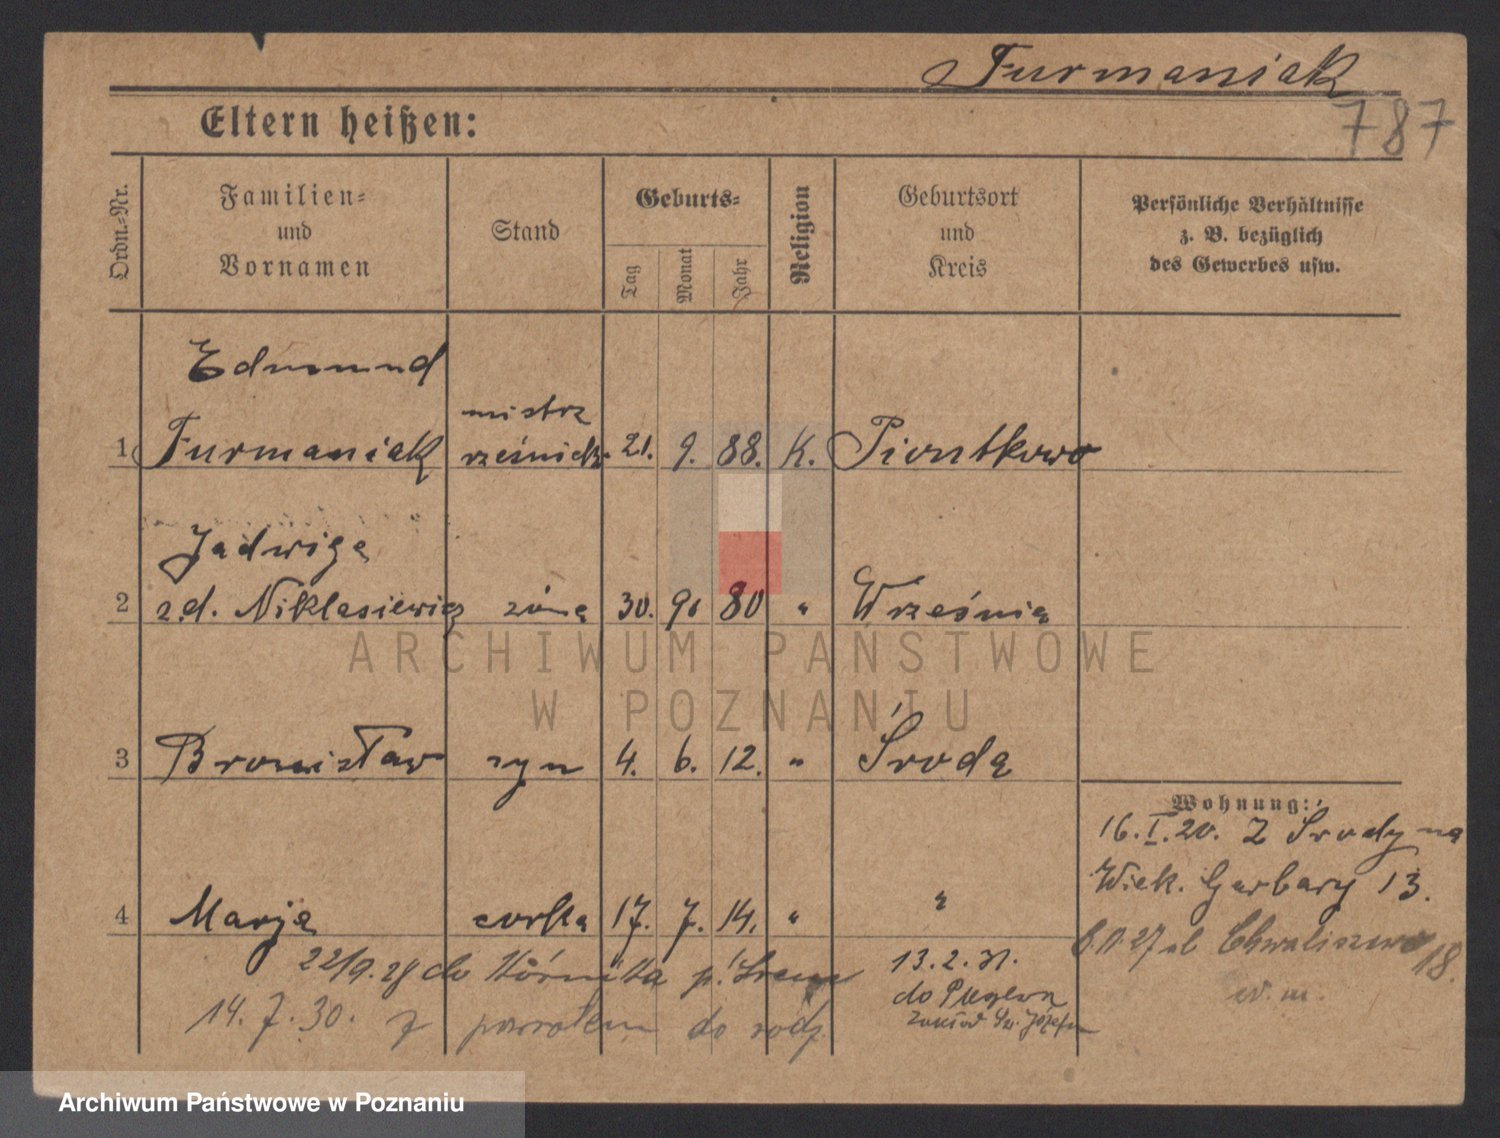 Furmaniak
787
Eltern heißen:
Ordn.-Nr.
Familien-
und
Vornamen
Stand
Geburts-
Tag
Monat
Jahr
Religion
Geburtsort
und
Kreis
Persönliche Verhältnisse
z. B. bezüglich
des Gewerbes usw.
Edmund
1 Furmaniak
mistrz
rzeźnicki
21. 9. 88. K. Piontkowo
Jadwiga
2 z d. Niklasiewicz żona 30. 9. 80 " Września
ARCHIWUM PAŃSTWOWE
W POZNANIU
3 Bronisław syn 4. 6. 12. " Środa
Wohnung:
16. I. 20. Z Środy na
Wielk. Garbary 13.
4 Marja córka 17. 7. 14. " "
27 ul Chwaliszewo 18.
22/9. 28 do Kórnika p. Śrem
14. 7. 30. z powrotem do rodz.
13. 2. 31.
do
zakład św. Józefa
Archiwum Państwowe w Poznaniu